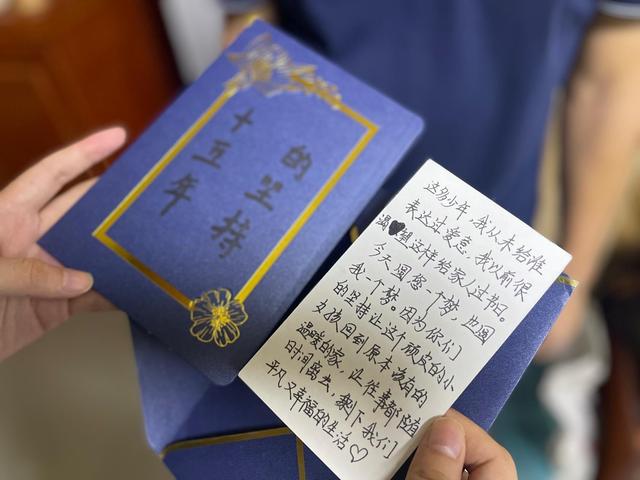 十五年
的坚持
这多少年,我从未给谁
表达过爱意,我以前很
渴♥望这样给家人过节日。
今天圆您一个梦,也圆
我一个梦。因为你们
的坚持让这个顽皮的小
女孩回到原本该有的
温暖的家,让往事都随
时间离去,剩下我们
平凡又幸福的生活♡